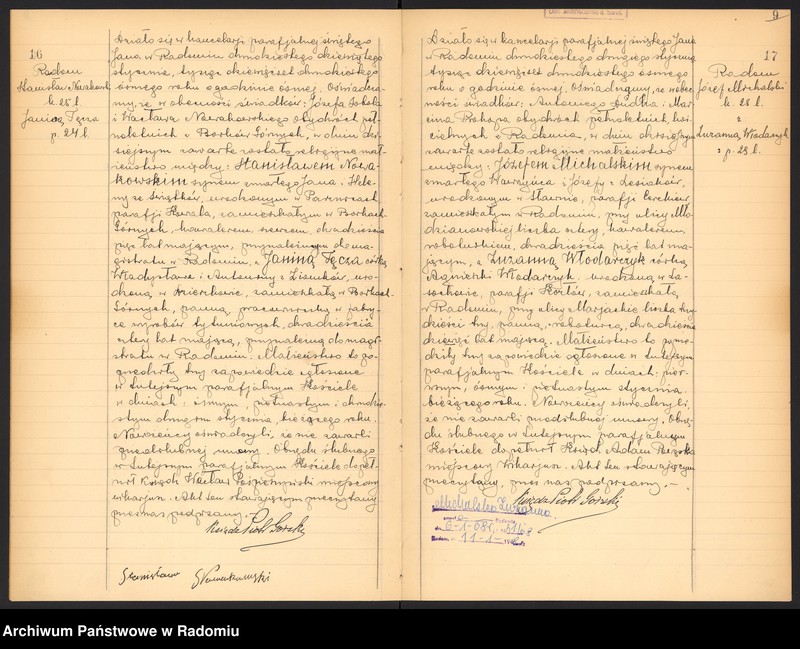 16
Radom
Stanisław Nowakowski
k. 25 l.
Janina Tęcza
p. 24 l.
Działo się w kancelarji parafjalnej świętego
Jana w Radomiu dwudziestego dziewiątego
stycznia, tysiąc dziewięćset dwudziestego
ósmego roku o godzinie ósmej. Oświadcza-
my, że w obecności świadków: Józefa Sobola
i Wacława Nowakowskiego obydwóch peł-
noletnich z Borków Górnych, w dniu dzi-
siejszym zawarte zostało religijne mał-
żeństwo między: Stanisławem Nowa-
kowskim synem zmarłego Jana i Hele-
ny ze Świątków, urodzonym w
parafji Kowala, zamieszkałym w Borkach
Górnych, kawalerem, szewcem, dwadzieścia
pięć lat mającym, przynależnym do ma-
gistratu w Radomiu, a Janiną Tęcza córką
Władysława i Antoniny z uro-
dzoną w zamieszkałą w Borkach
Górnych, panną, pracownicą w fabry-
ce wyrobów tytuniowych, dwadzieścia
cztery lat mającą, przynależną do magi-
stratu w Radomiu. Małżeństwo to po-
przedziły trzy zapowiedzie ogłoszone
w tutejszym parafjalnym Kościele
w dniach: ósmym, piętnastym i dwudzie-
stym drugim stycznia, bieżącego roku.
Nowożeńcy oświadczyli, że nie zawarli
przedślubnej umowy. Obrzędu ślubnego
w tutejszym parafjalnym Kościele dopeł-
nił Ksiądz Wacław miejscowy
wikarjusz. Akt ten stawającym przeczytany
przez nas podpisany.
Ksiądz Piotr Górski
Stanisław Nowakowski
9
17
Radom
Józef Michalski
k. 25 l.
z
Zuzanną Włodarczyk
p. 29 l.
Działo się w kancelarji parafjalnej świętego Jana
w Radomiu dwudziestego drugiego stycznia
tysiąc dziewięćset dwudziestego ósmego
roku o godzinie ósmej. Oświadczamy, że w obec-
ności świadków: Antoniego i Mar-
cina obydwóch pełnoletnich,
z Radomia, w dniu dzisiejszym
zawarte zostało religijne małżeństwo
między: Józefem Michalskim synem
zmarłego Wawrzyńca i Józefy z Lesiaków,
urodzonym w parafji
zamieszkałym w Radomiu, przy ulicy Mło-
dzianowskiej liczba cztery, kawalerem
robotnikiem, dwadzieścia pięć lat ma-
jącym, a Zuzanną Włodarczyk córką
Agnieszki Włodarczyk urodzoną w
parafji zamieszkałą
w Radomiu, przy ulicy Marjackiej liczba trzy-
dzieści trzy, panną, robotnicą, dwadzieścia
dziewięć lat mającą. Małżeństwo to poprze-
dziły trzy zapowiedzie ogłoszone w tutejszym
parafjalnym Kościele w dniach: pier-
wszym, ósmym i piętnastym stycznia
bieżącego roku. Nowożeńcy oświadczyli,
że nie zawarli przedślubnej umowy. Obrzę-
du ślubnego w tutejszym parafjalnym
Kościele dopełnił Ksiądz Adam
miejscowy Wikarjusz. Akt ten stawającym
przeczytany, przez nas podpisany.
Ksiądz Piotr Górski
Michalska Zuzanna
Archiwum Państwowe w Radomiu